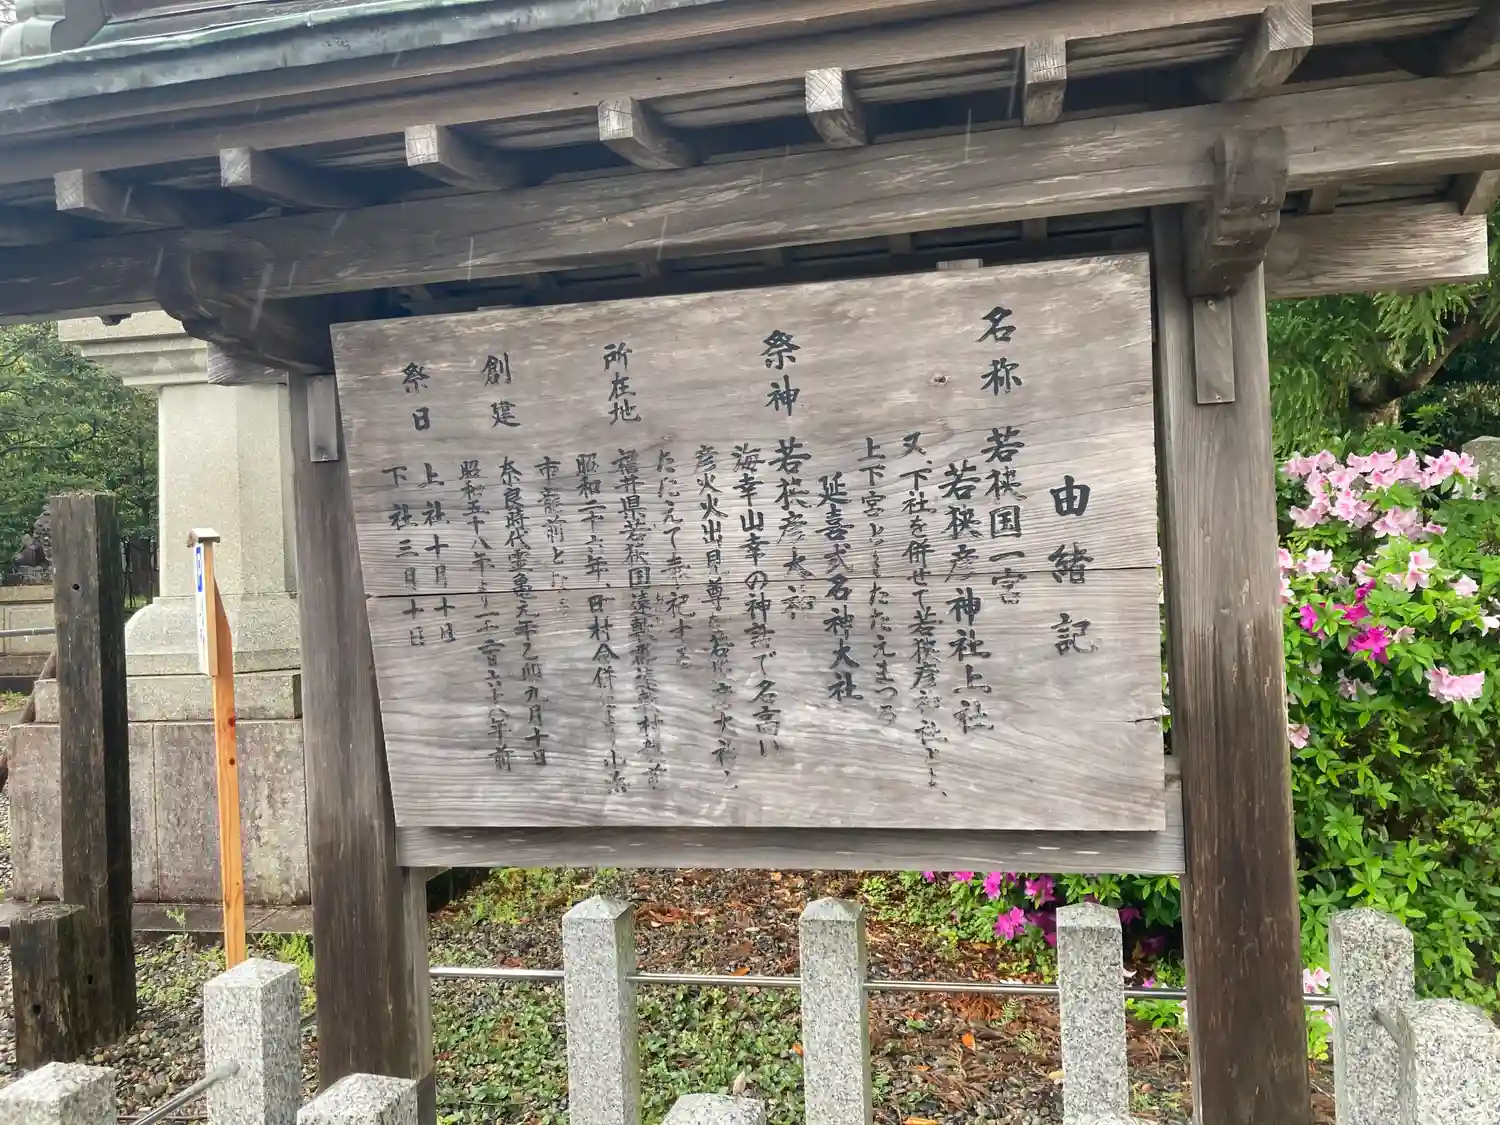 由緒記
名称 若狭国一宮
若狭彦神社上社
又、下社を併せて若狭彦神社とよ
上下宮とよまたたえまつる
延喜式名神大社
祭神 若狭彦大神
海幸山幸の神話で名高い
彦火火出見尊を若狭彦大神と
たたえて奉祀する
所在地 福井県若狭国遠敷郡遠敷村
昭和二十六年、町村合併により小浜
市龍前となる
創建 奈良時代霊亀元年乙卯九月十日
昭和五十八年より一二六八年前
祭日 上社十月十日
下社三月十日